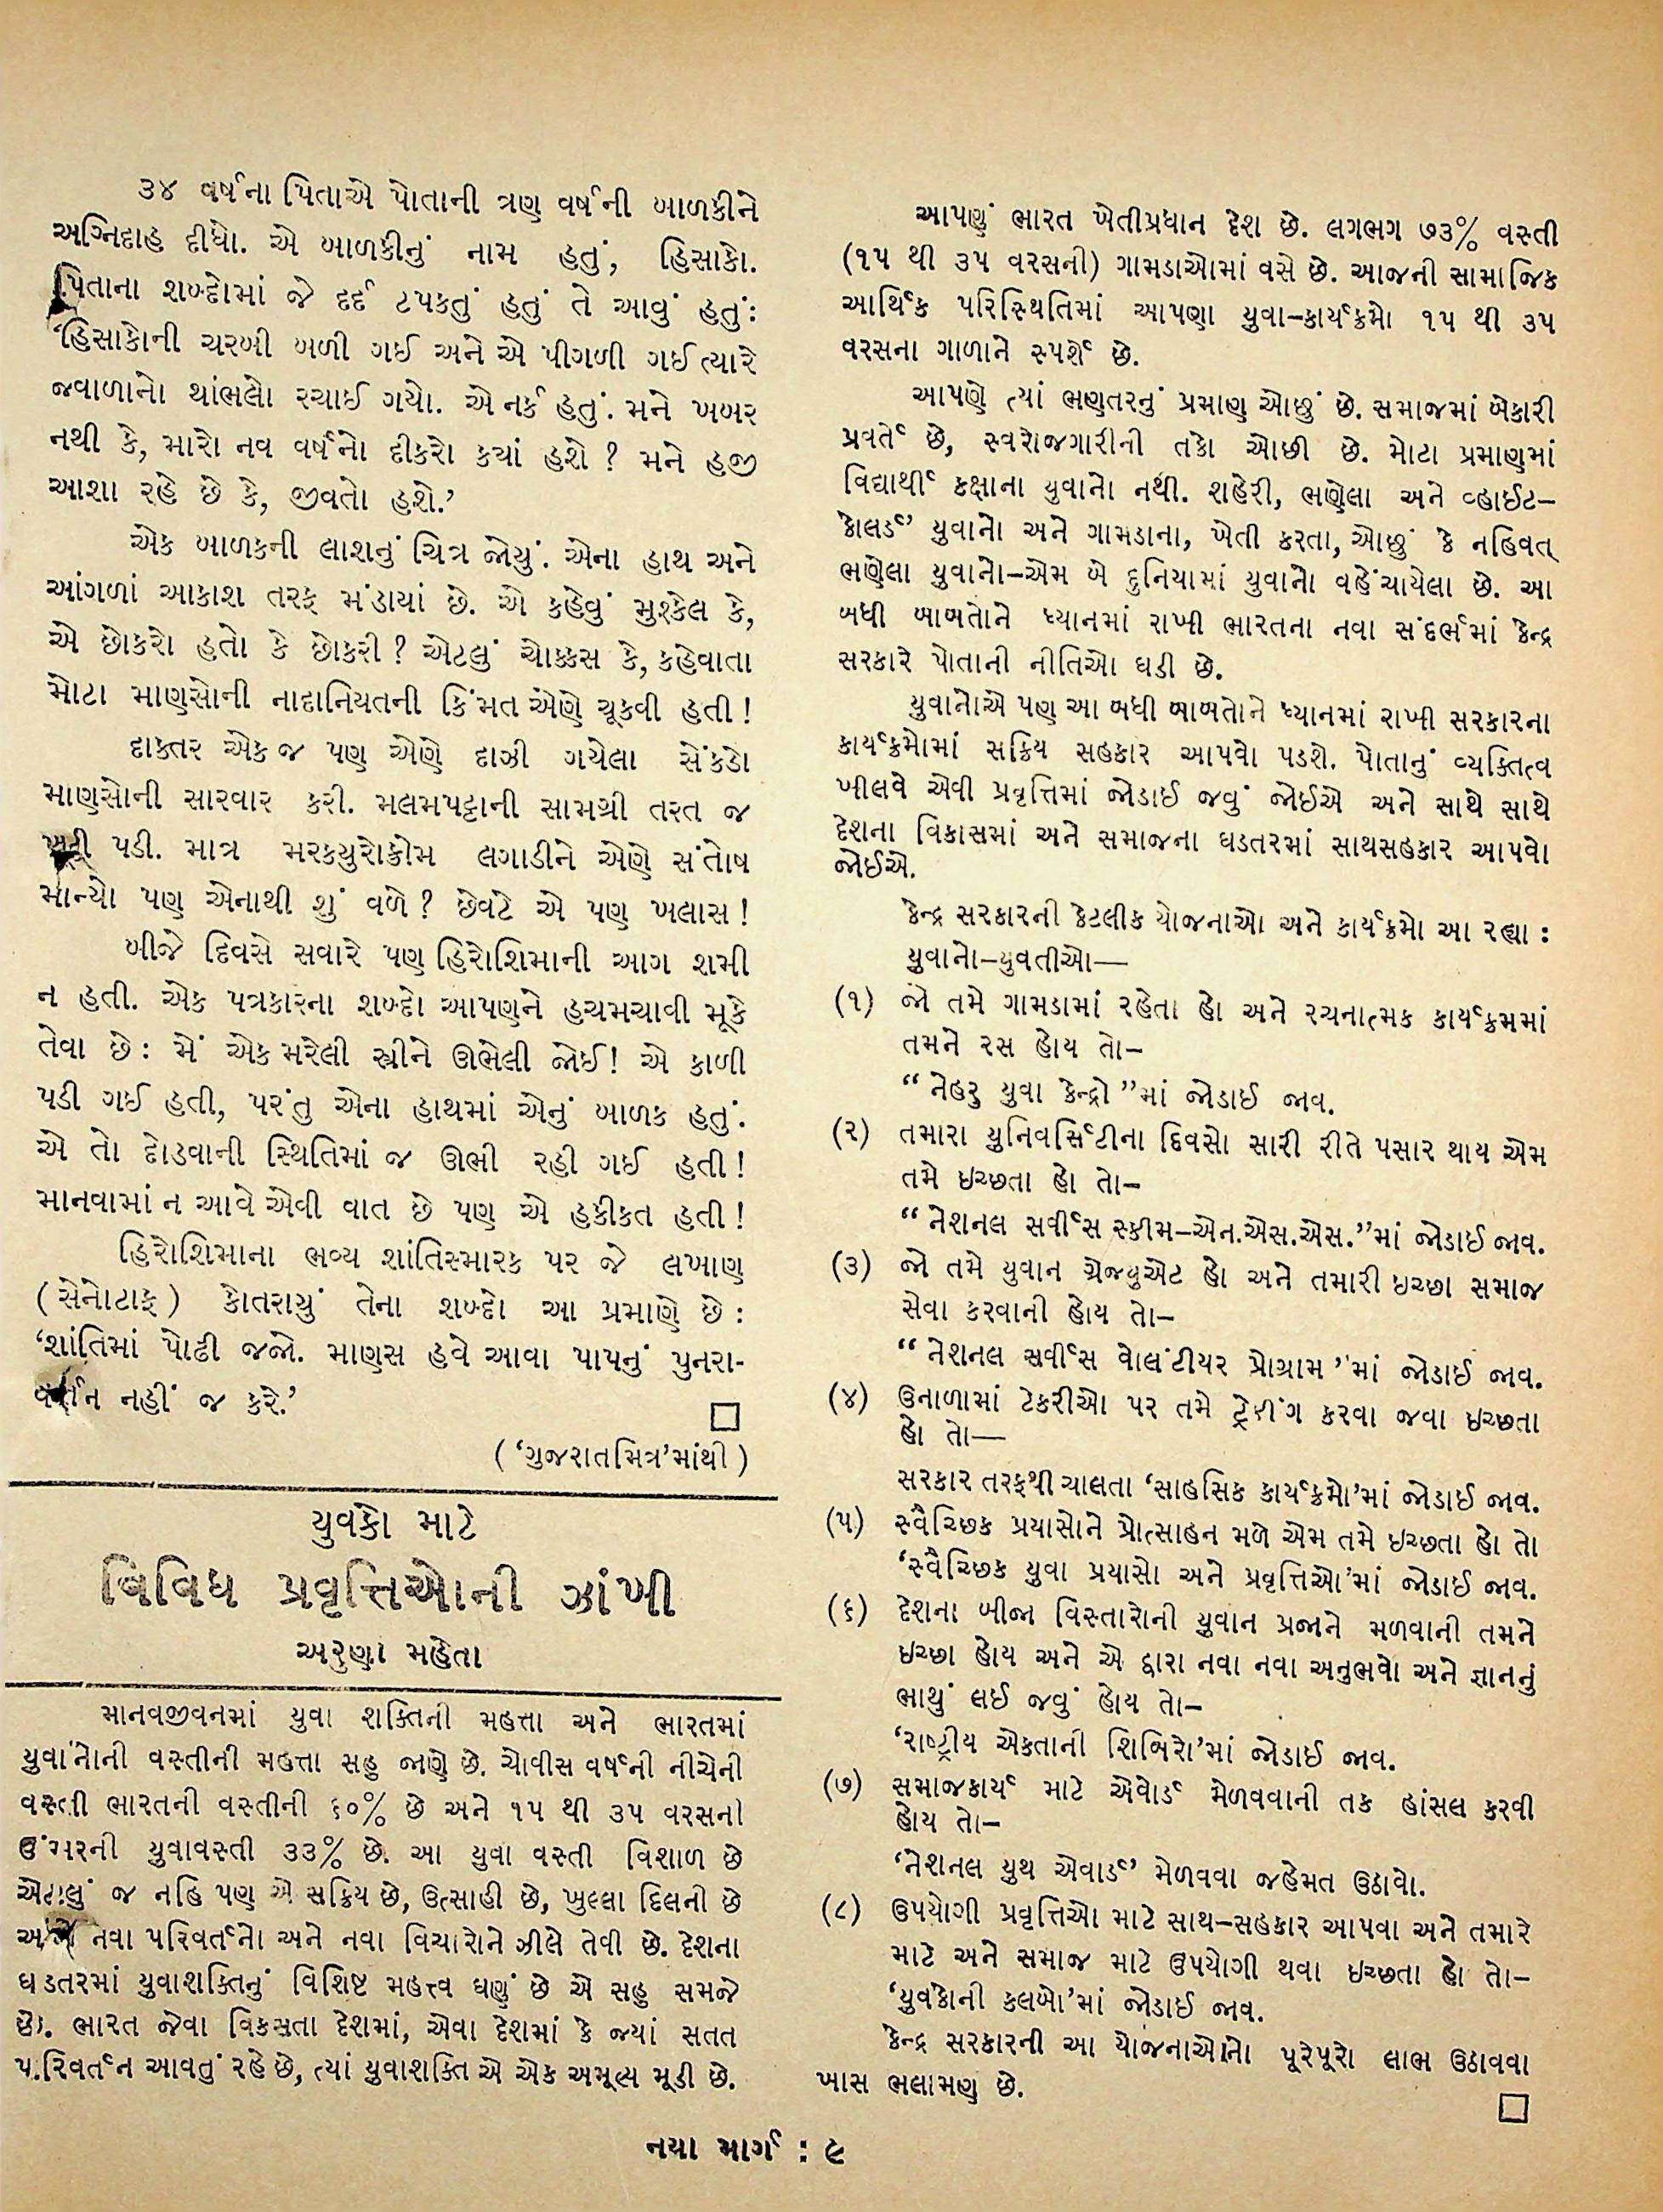 ૩૪ વર્ષના પિતાએ પોતાની ત્રણ વર્ષની બાળકીને
અગ્નિદાહ દીધો. એ બાળકીનું નામ હતું, હિસાકો.
પિતાના શબ્દોમાં જે દર્દ ટપકતું હતું તે આવું હતું:
‘હિસાકોની ચરબી બળી ગઈ અને એ પીગળી ગઈ ત્યારે
જવાળાનો થાંભલો રચાઈ ગયો. એ નર્ક હતું. મને ખબર
નથી કે, મારો નવ વર્ષનો દીકરો ક્યાં હશે ? મને હજી
આશા રહે છે કે, જીવતો હશે.’
એક બાળકની લાશનું ચિત્ર જોયું. એના હાથ અને
આંગળાં આકાશ તરફ મંડાયાં છે. એ કહેવું મુશ્કેલ કે,
એ છોકરો હતો કે છોકરી ? એટલું ચોક્કસ કે, કહેવાતા
મોટા માણસોની નાદાનિયતની કિંમત એણે ચૂકવી હતી !
દાક્તર એક જ પણ એણે દાઝી ગયેલા સેંકડો
માણસોની સારવાર કરી. મલમપટ્ટાની સામગ્રી તરત જ
ખૂટી પડી. માત્ર મરક્યુરોક્રોમ લગાડીને એણે સંતોષ
માન્યો પણ એનાથી શું વળે ? છેવટે એ પણ ખલાસ !
બીજે દિવસે સવારે પણ હિરોશિમાની આગ શમી
ન હતી. એક પત્રકારના શબ્દો આપણને હચમચાવી મૂકે
તેવા છે : મેં એક મરેલી સ્ત્રીને ઊભેલી જોઈ! એ કાળી
પડી ગઈ હતી, પરંતુ એના હાથમાં એનું બાળક હતું.
એ તો દોડવાની સ્થિતિમાં જ ઊભી રહી ગઈ હતી !
માનવામાં ન આવે એવી વાત છે પણ એ હકીકત હતી !
હિરોશિમાના ભવ્ય શાંતિસ્મારક પર જે લખાણ
(સેનોટાફ) કોતરાયું તેના શબ્દો આ પ્રમાણે છે :
‘શાંતિમાં પોઢી જજો. માણસ હવે આવા પાપનું પુનરા-
વર્તન નહીં જ કરે.’
(‘ગુજરાતમિત્ર’માંથી)
યુવકો માટે
વિવિધ પ્રવૃત્તિઓની ઝાંખી
અરુણા મહેતા
માનવજીવનમાં યુવા શક્તિની મહત્તા અને ભારતમાં
યુવાનોની વસ્તીની મહત્તા સહુ જાણે છે. ચોવીસ વર્ષની નીચેની
વસ્તી ભારતની વસ્તીની ૬૦% છે અને ૧૫ થી ૩૫ વરસની
ઉંમરની યુવાવસ્તી ૩૩% છે. આ યુવા વસ્તી વિશાળ છે
એટલું જ નહિ પણ એ સક્રિય છે, ઉત્સાહી છે, ખુલ્લા દિલની છે
અને નવા પરિવર્તનો અને નવા વિચારોને ઝીલે તેવી છે. દેશના
ઘડતરમાં યુવાશક્તિનું વિશિષ્ટ મહત્ત્વ ઘણું છે એ સહુ સમજે
છે. ભારત જેવા વિકસતા દેશમાં, એવા દેશમાં કે જ્યાં સતત
પરિવર્તન આવતું રહે છે, ત્યાં યુવાશક્તિ એ એક અમૂલ્ય મૂડી છે.
આપણું ભારત ખેતીપ્રધાન દેશ છે. લગભગ ૭૩% વસ્તી
(૧૫ થી ૩૫ વરસની) ગામડાઓમાં વસે છે. આજની સામાજિક
આર્થિક પરિસ્થિતિમાં આપણા યુવા-કાર્યક્રમો ૧૫ થી ૩૫
વરસના ગાળાને સ્પર્શે છે.
આપણે ત્યાં ભણતરનું પ્રમાણ ઓછું છે. સમાજમાં બેકારી
પ્રવર્તે છે, સ્વરોજગારીની તકો ઓછી છે. મોટા પ્રમાણમાં
વિદ્યાર્થી કક્ષાના યુવાનો નથી. શહેરી, ભણેલા અને વ્હાઈટ-
કોલર્ડ’ યુવાનો અને ગામડાના, ખેતી કરતા, ઓછું કે નહિવત્
ભણેલા યુવાનો-એમ બે દુનિયામાં યુવાનો વહેંચાયેલા છે. આ
બધી બાબતોને ધ્યાનમાં રાખી ભારતના નવા સંદર્ભમાં કેન્દ્ર
સરકારે પોતાની નીતિઓ ઘડી છે.
યુવાનોએ પણ આ બધી બાબતોને ધ્યાનમાં રાખી સરકારના
કાર્યક્રમોમાં સક્રિય સહકાર આપવો પડશે. પોતાનું વ્યક્તિત્વ
ખીલવે એવી પ્રવૃત્તિમાં જોડાઈ જવું જોઈએ અને સાથે સાથે
દેશના વિકાસમાં અને સમાજના ઘડતરમાં સાથસહકાર આપવો
જોઈએ.
કેન્દ્ર સરકારની કેટલીક યોજનાઓ અને કાર્યક્રમો આ રહ્યા :
યુવાનો-યુવતીઓ—
(૧) જો તમે ગામડામાં રહેતા હો અને રચનાત્મક કાર્યક્રમમાં
તમને રસ હોય તો-
“નેહરુ યુવા કેન્દ્રો”માં જોડાઈ જાવ.
(૨) તમારા યુનિવર્સિટીના દિવસો સારી રીતે પસાર થાય એમ
તમે ઇચ્છતા હો તો-
“નેશનલ સર્વીસ સ્કીમ-એન.એસ.એસ.”માં જોડાઈ જાવ.
(૩) જો તમે યુવાન ગ્રેજ્યુએટ હો અને તમારી ઇચ્છા સમાજ
સેવા કરવાની હોય તો-
“નેશનલ સર્વીસ વોલંટીયર પ્રોગ્રામ”માં જોડાઈ જાવ.
(૪) ઉનાળામાં ટેકરીઓ પર તમે ટ્રેકીંગ કરવા જવા ઇચ્છતા
હો તો—
સરકાર તરફથી ચાલતા ‘સાહસિક કાર્યક્રમો’માં જોડાઈ જાવ.
(૫) સ્વૈચ્છિક પ્રયાસોને પ્રોત્સાહન મળે એમ તમે ઇચ્છતા હો તો
‘સ્વૈચ્છિક યુવા પ્રયાસો અને પ્રવૃત્તિઓ’માં જોડાઈ જાવ.
(૬) દેશના બીજા વિસ્તારોની યુવાન પ્રજાને મળવાની તમને
ઇચ્છા હોય અને એ દ્વારા નવા નવા અનુભવો અને જ્ઞાનનું
ભાથું લઈ જવું હોય તો-
‘રાષ્ટ્રીય એકતાની શિબિરો’માં જોડાઈ જાવ.
(૭) સમાજકાર્ય માટે એવોર્ડ મેળવવાની તક હાંસલ કરવી
હોય તો-
‘નેશનલ યુથ એવાર્ડ’ મેળવવા જહેમત ઉઠાવો.
(૮) ઉપયોગી પ્રવૃત્તિઓ માટે સાથ-સહકાર આપવા અને તમારે
માટે અને સમાજ માટે ઉપયોગી થવા ઇચ્છતા હો તો-
‘યુવકોની કલબો’માં જોડાઈ જાવ.
કેન્દ્ર સરકારની આ યોજનાઓનો પૂરેપૂરો લાભ ઉઠાવવા
ખાસ ભલામણ છે.
નયા માર્ગ : ૯